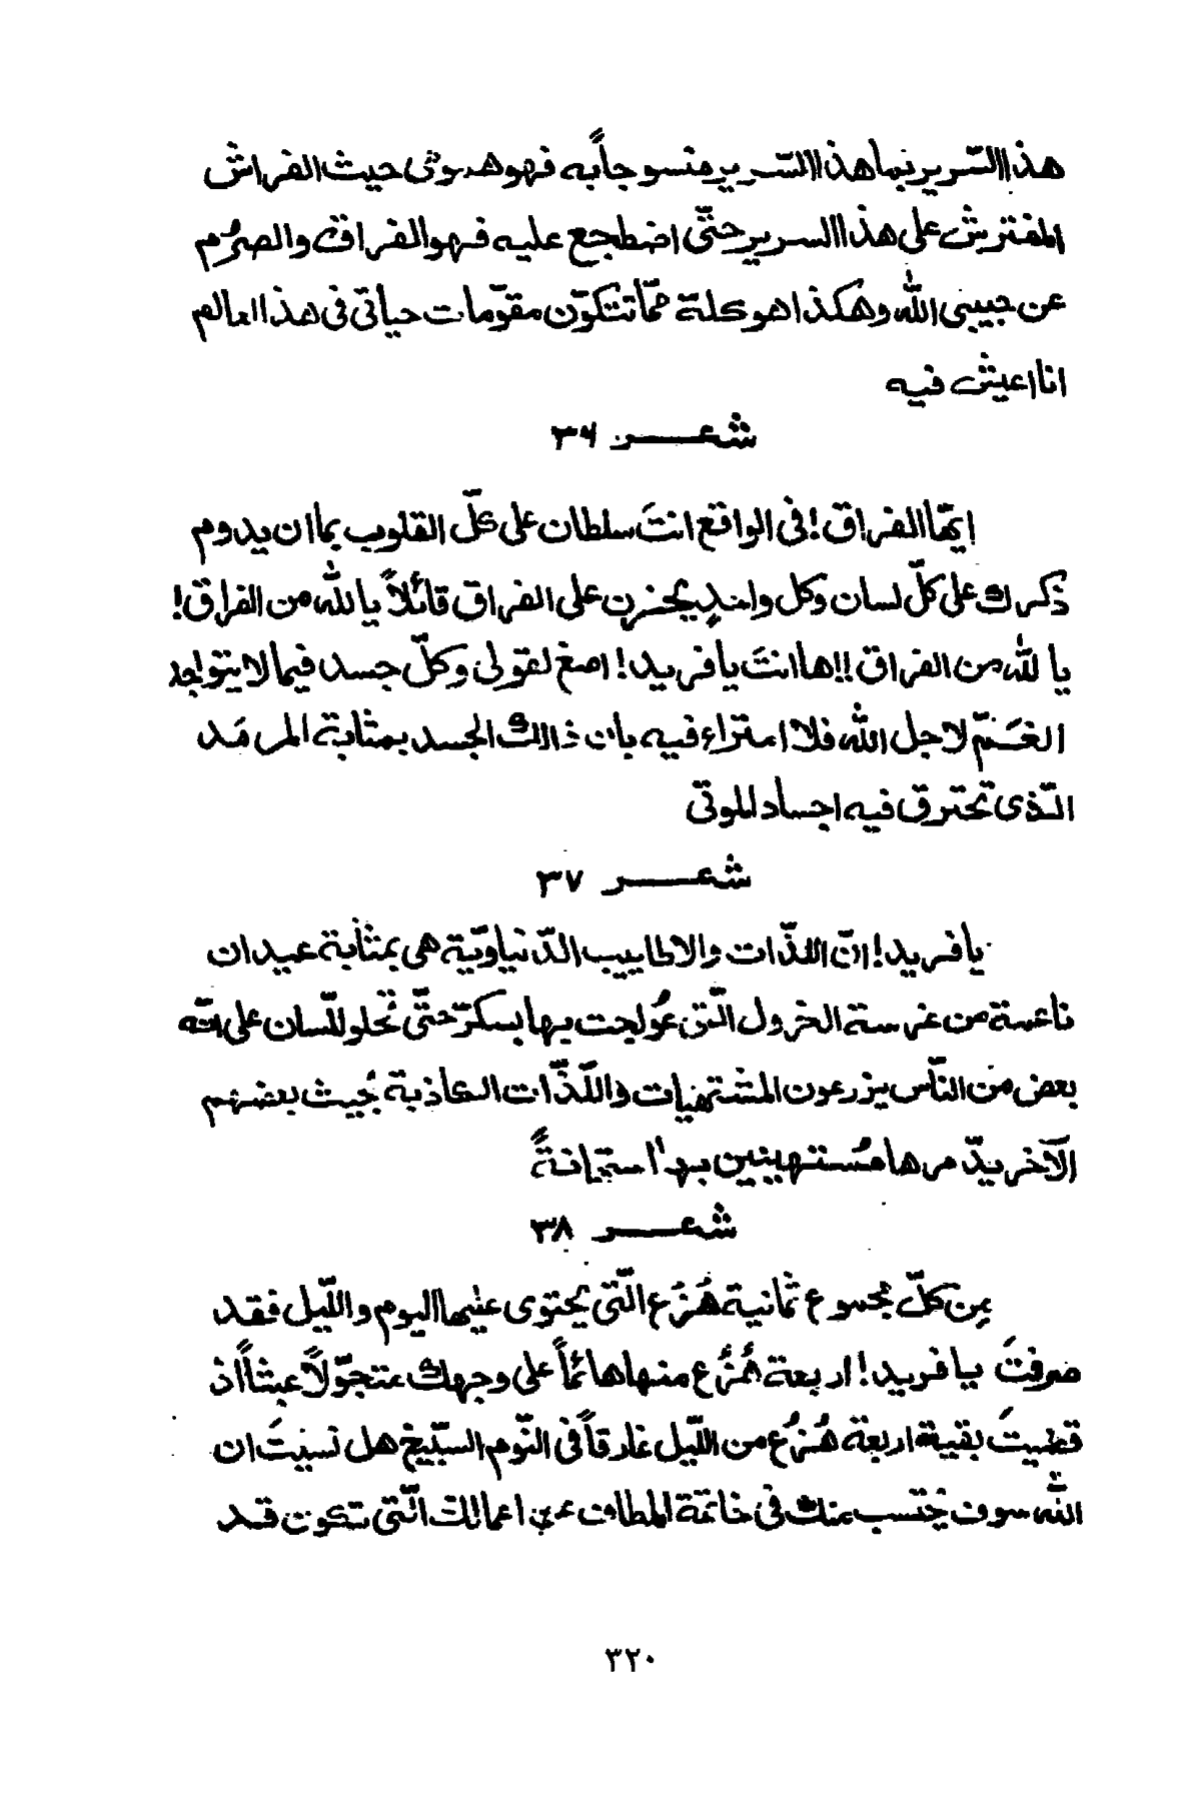 هذا السّرير بما هذا السّرير منسوجاً به فهو همومى حيث الفراش
المفترش على هذا السرير حتّى اضطجع عليه فهو الفراق والصرُم
عن حبيبى الله وهكذا هو كلة ممّا تتكوّن مقوّمات حياتى فى هذا العالم
انا اعيش فيه
شعر ٣٦
ايّها الفراق! فى الواقع انتَ سلطان على كلّ القلوب بما ان يدوم
ذكرك على كلّ لسان وكل واحدٍ يحزن على الفراق قائلاً يا لله من الفراق!
يا لله من الفراق!! ها انتَ يا فريد! اصغ لقولى وكلّ جسد فيما لا يتواجد
الغَمّ لاجل الله فلا امتراء فيه بان ذالك الجسد بمثابة المرمَد
الّذى تحترق فيه اجساد الموتى
شعر ٣٧
يا فريد! انّ اللذّات والاطاييب الدّنياويّة هى بمثابة عيدان
ناعمة من غرسة الخرول الّتى عُولجت بها بسكرّ حتّى تُحلو للّسان على انّه
بعض من النّاس يزرعون المشتهيات واللّذّات الكاذبة بحُيث بعضهم
الآخر يدّمرها مُستهينين بها استهانةً
شعر ٣٨
مِن كلّ مجموع ثمانية هُزُع الّتى يحتوى عليها اليوم واللّيل فقد
صرفتَ يا فريد! اربعة هُزُع منها هائماً على وجهك متجوّلاً عبثاً اذ
قضيتَ بقية اربعة هُزُع من اللّيل غارقاً فى النّوم السّبيخ هل نسيتَ ان
الله سوف يحتسب منك فى خاتمة المطاف عن اعمالك الّتى تكون قد
٣٢٠